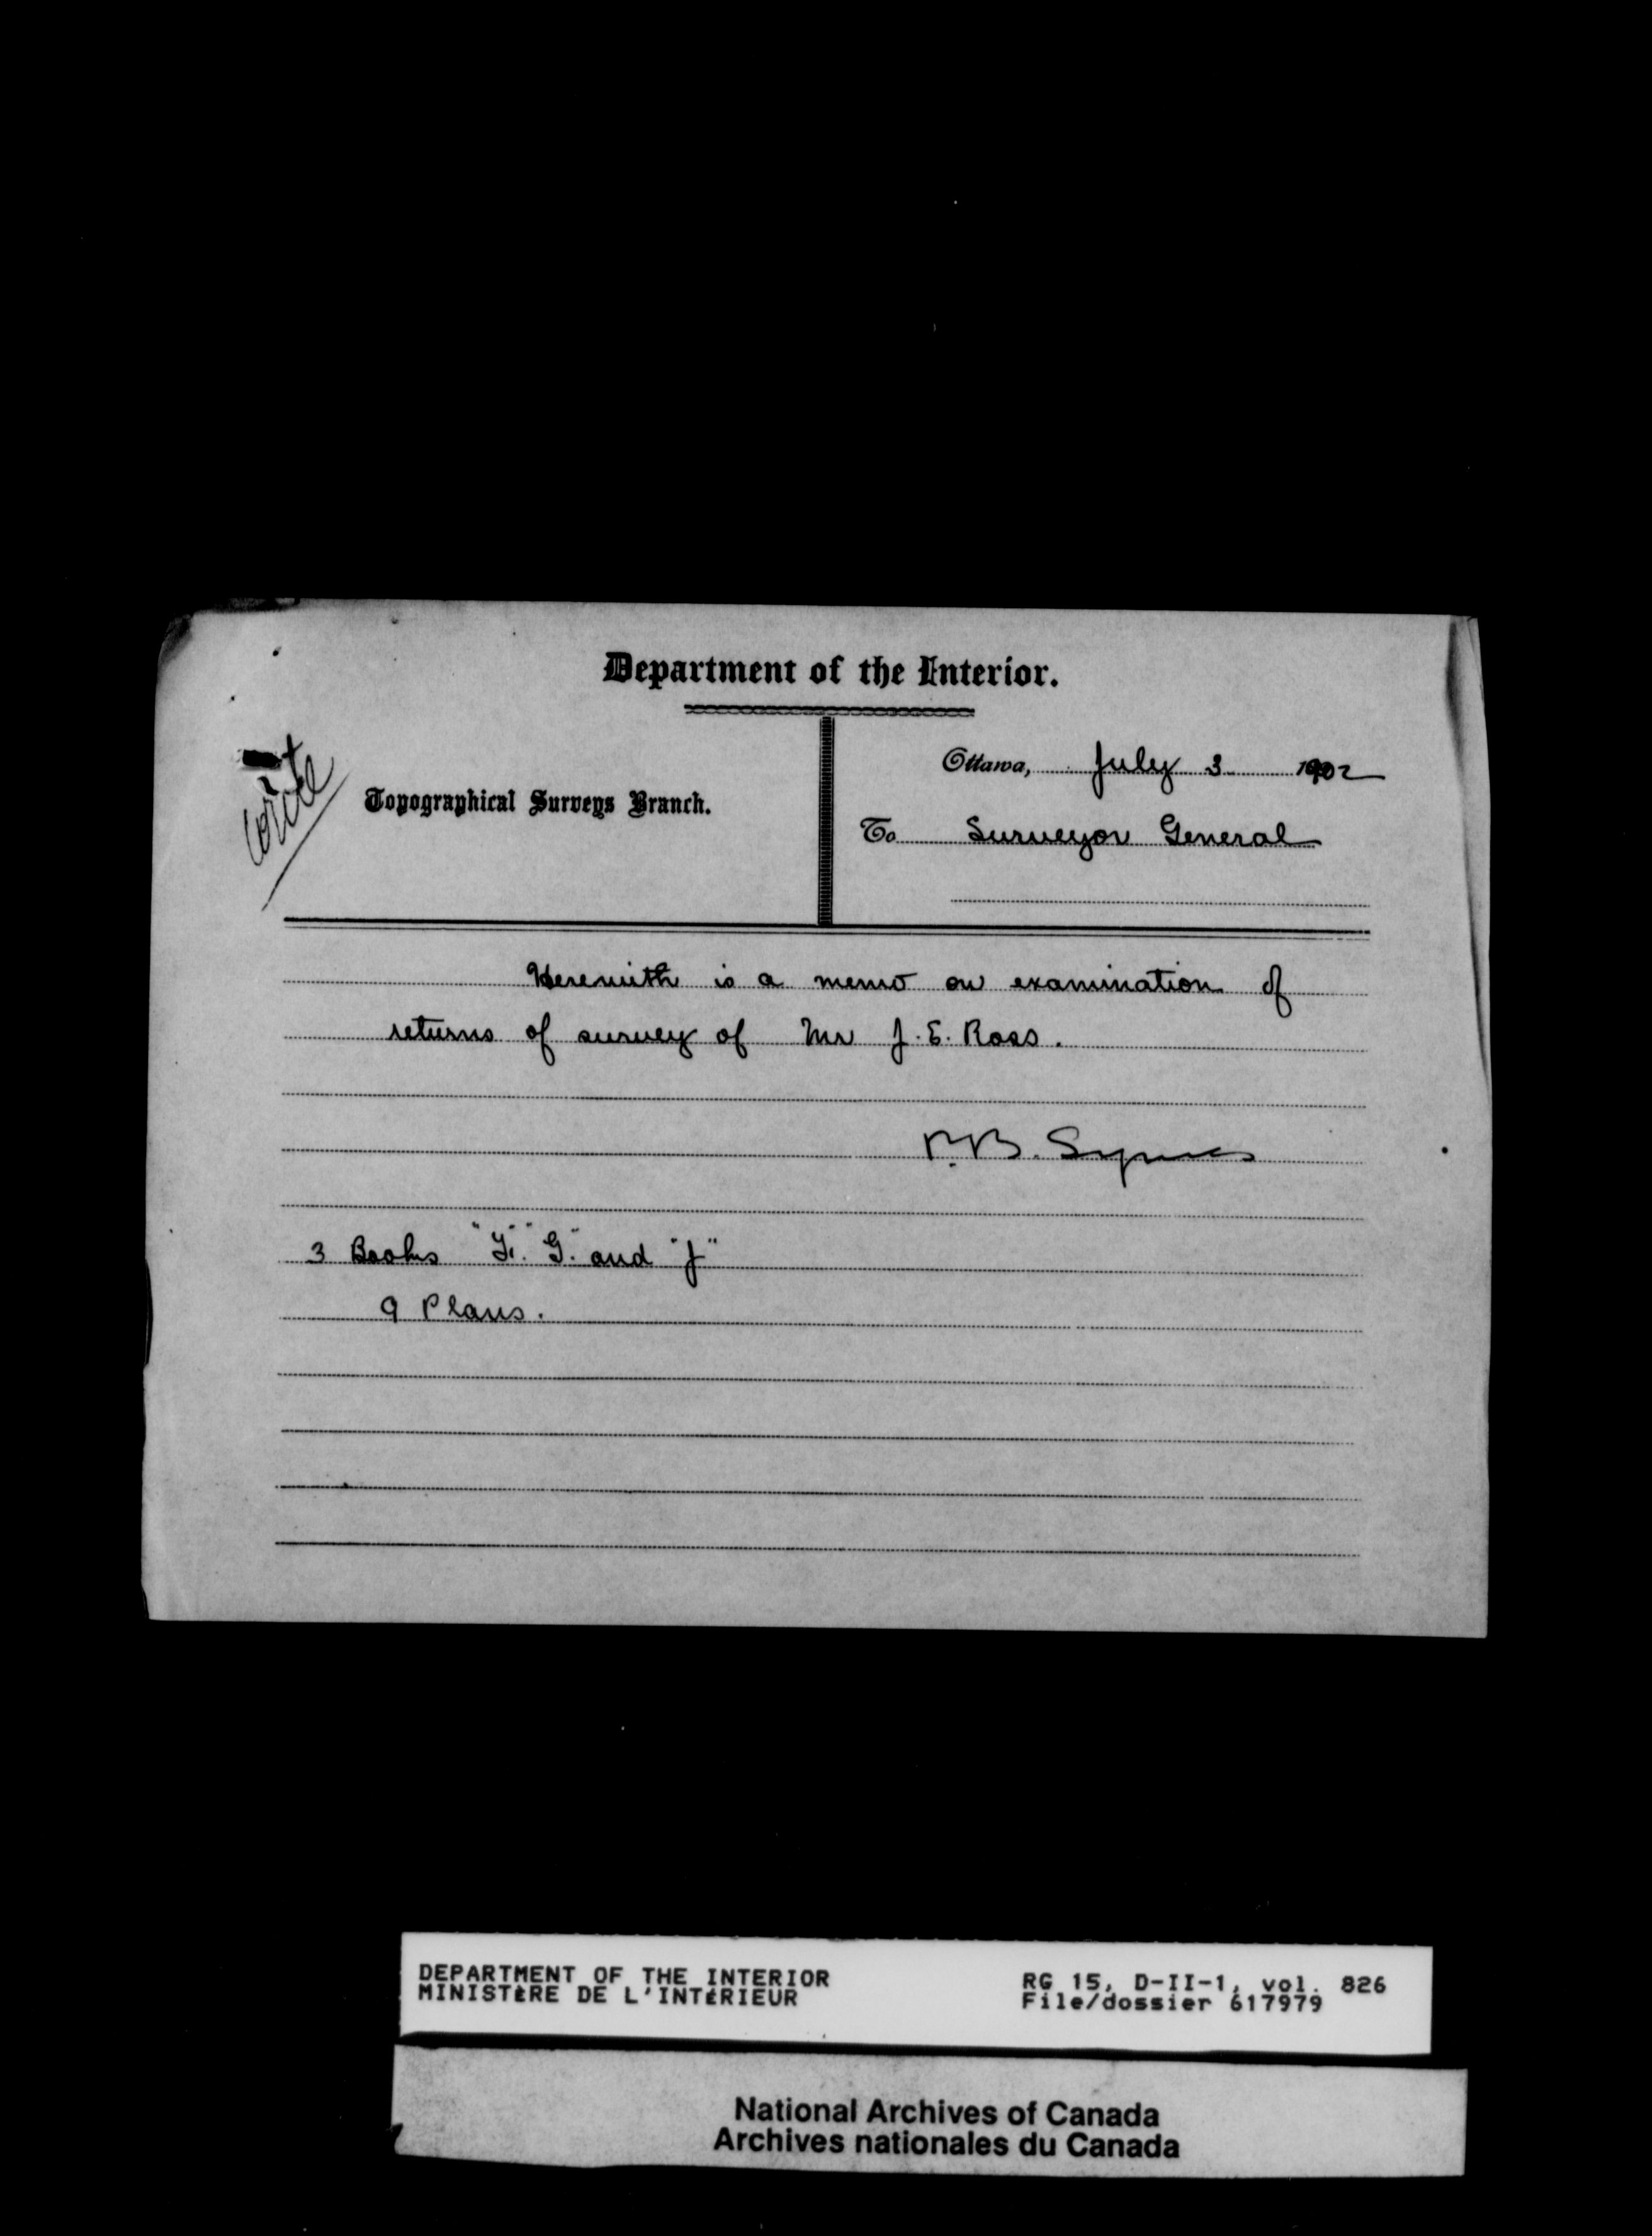 Department of the Interior.
write
Topographical Surveys Branch.
Ottawa, July 3 1902
To Surveyor General
Herewith is a memo on examination of
returns of survey of Mr J. E. Ross.
P.B. Symes
3 Books "F". "G" and "J"
9 Plans.
DEPARTMENT OF THE INTERIOR
MINISTÈRE DE L'INTÉRIEUR
RG 15, D-II-1, vol. 826
File/dossier 617979
National Archives of Canada
Archives nationales du Canada